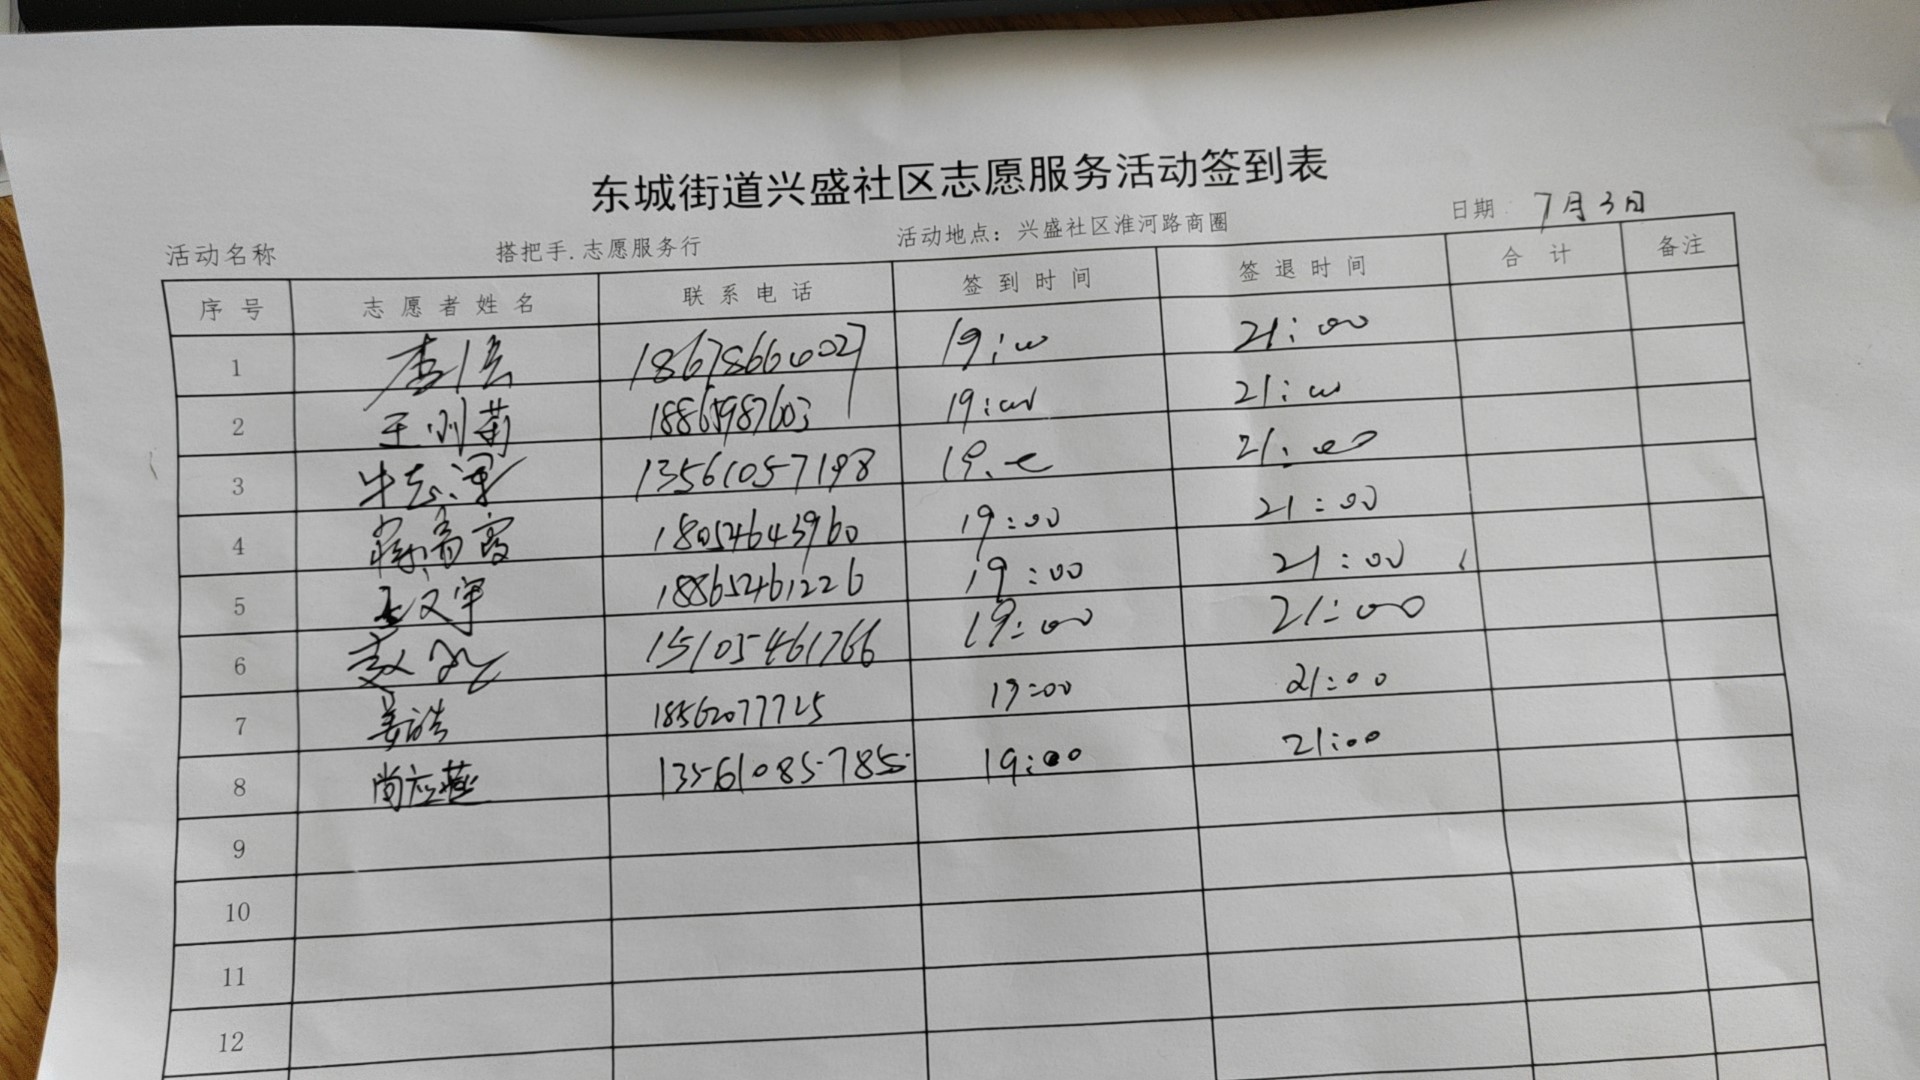 东城街道兴盛社区志愿服务活动签到表
活动名称 搭把手.志愿服务行 活动地点：兴盛社区淮河路商圈 日期 7月3日
序号 志愿者姓名 联系电话 签到时间 签退时间 合计 备注
1 李 18678660027 19:00 21:00
2 王 菊 18865987603 19:00 21:00
3 牛志军 13561057198 19:00 21:00
4 18054643960 19:00 21:00
5 王文宇 18865461226 19:00 21:00
6 赵 15105461766 19:00 21:00
7 姜皓 18562077725 19:00 21:00
8 尚应燕 13561085785 19:00 21:00
9
10
11
12